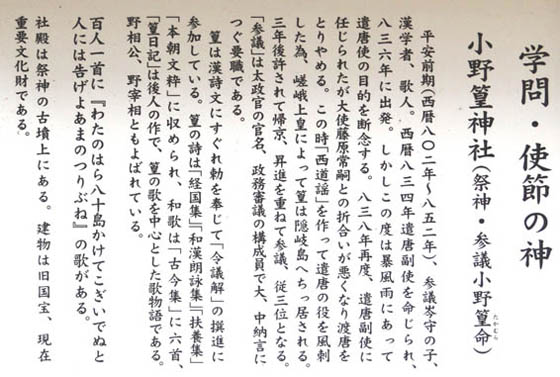 学問・使節の神
小野篁神社（祭神・参議小野篁命）
たかむら
平安前期（西暦八〇二年〜八五二年）、参議岑守の子、
漢学者、歌人。西暦八三四年遣唐副使を命じられ、
八三六年に出発。しかしこの度は暴風雨にあって
遣唐使の目的を断念する。八三八年再度、遣唐副使に
任じられたが大使藤原常嗣との折合いが悪くなり渡唐を
とりやめる。この時「西道謡」を作って遣唐の役を風刺
した為、嵯峨上皇によって篁は隠岐島へちっ居される。
三年後許されて帰京、昇進を重ねて参議、従三位となる。
「参議」は太政官の官名、政務審議の構成員で大、中納言に
つぐ要職である。
篁は漢詩文にすぐれ勅を奉じて「令議解」の撰進に
参加している。篁の詩は「経国集」「和漢朗詠集」「扶養集」
「本朝文粋」に収められ、和歌は「古今集」に六首、
「篁日記」は後人の作で、篁の歌を中心とした歌物語である。
野相公、野宰相ともよばれている。
百人一首に『わたのはら八十島かけてこぎいでぬと
人には告げよあまのつりぶね』の歌がある。
社殿は祭神の古墳上にある。建物は旧国宝、現在
重要文化財である。